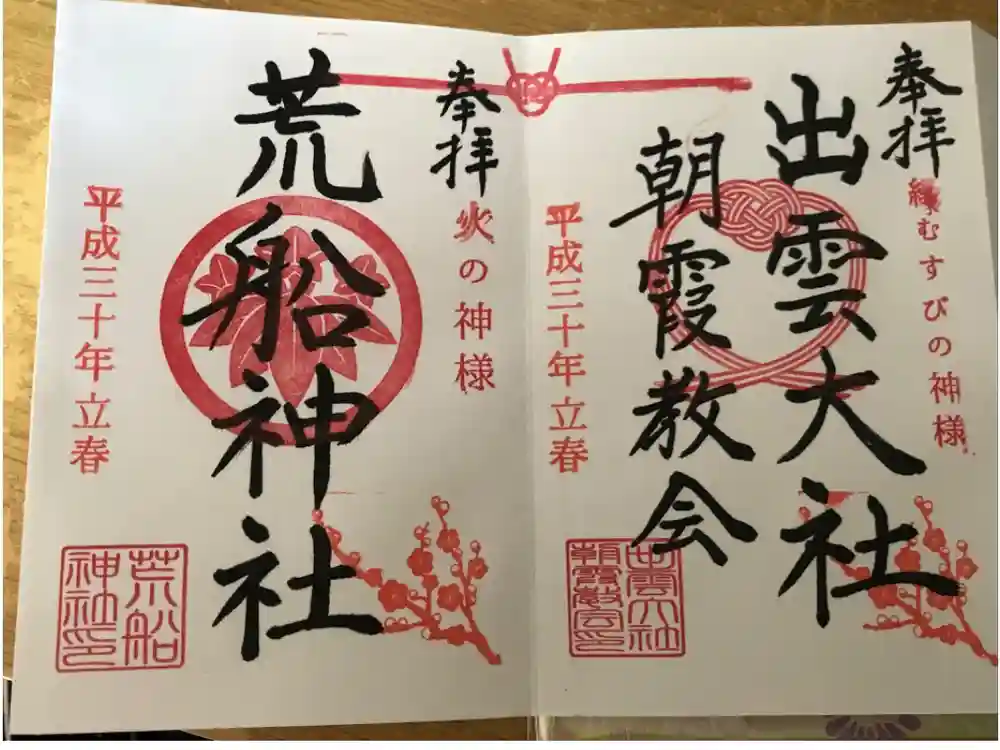 奉拝
縁むすびの神様
出雲大社
朝霞教会
平成三十年立春
出雲大社
朝霞教会印
奉拝
火の神様
荒船神社
平成三十年立春
荒船
神社印